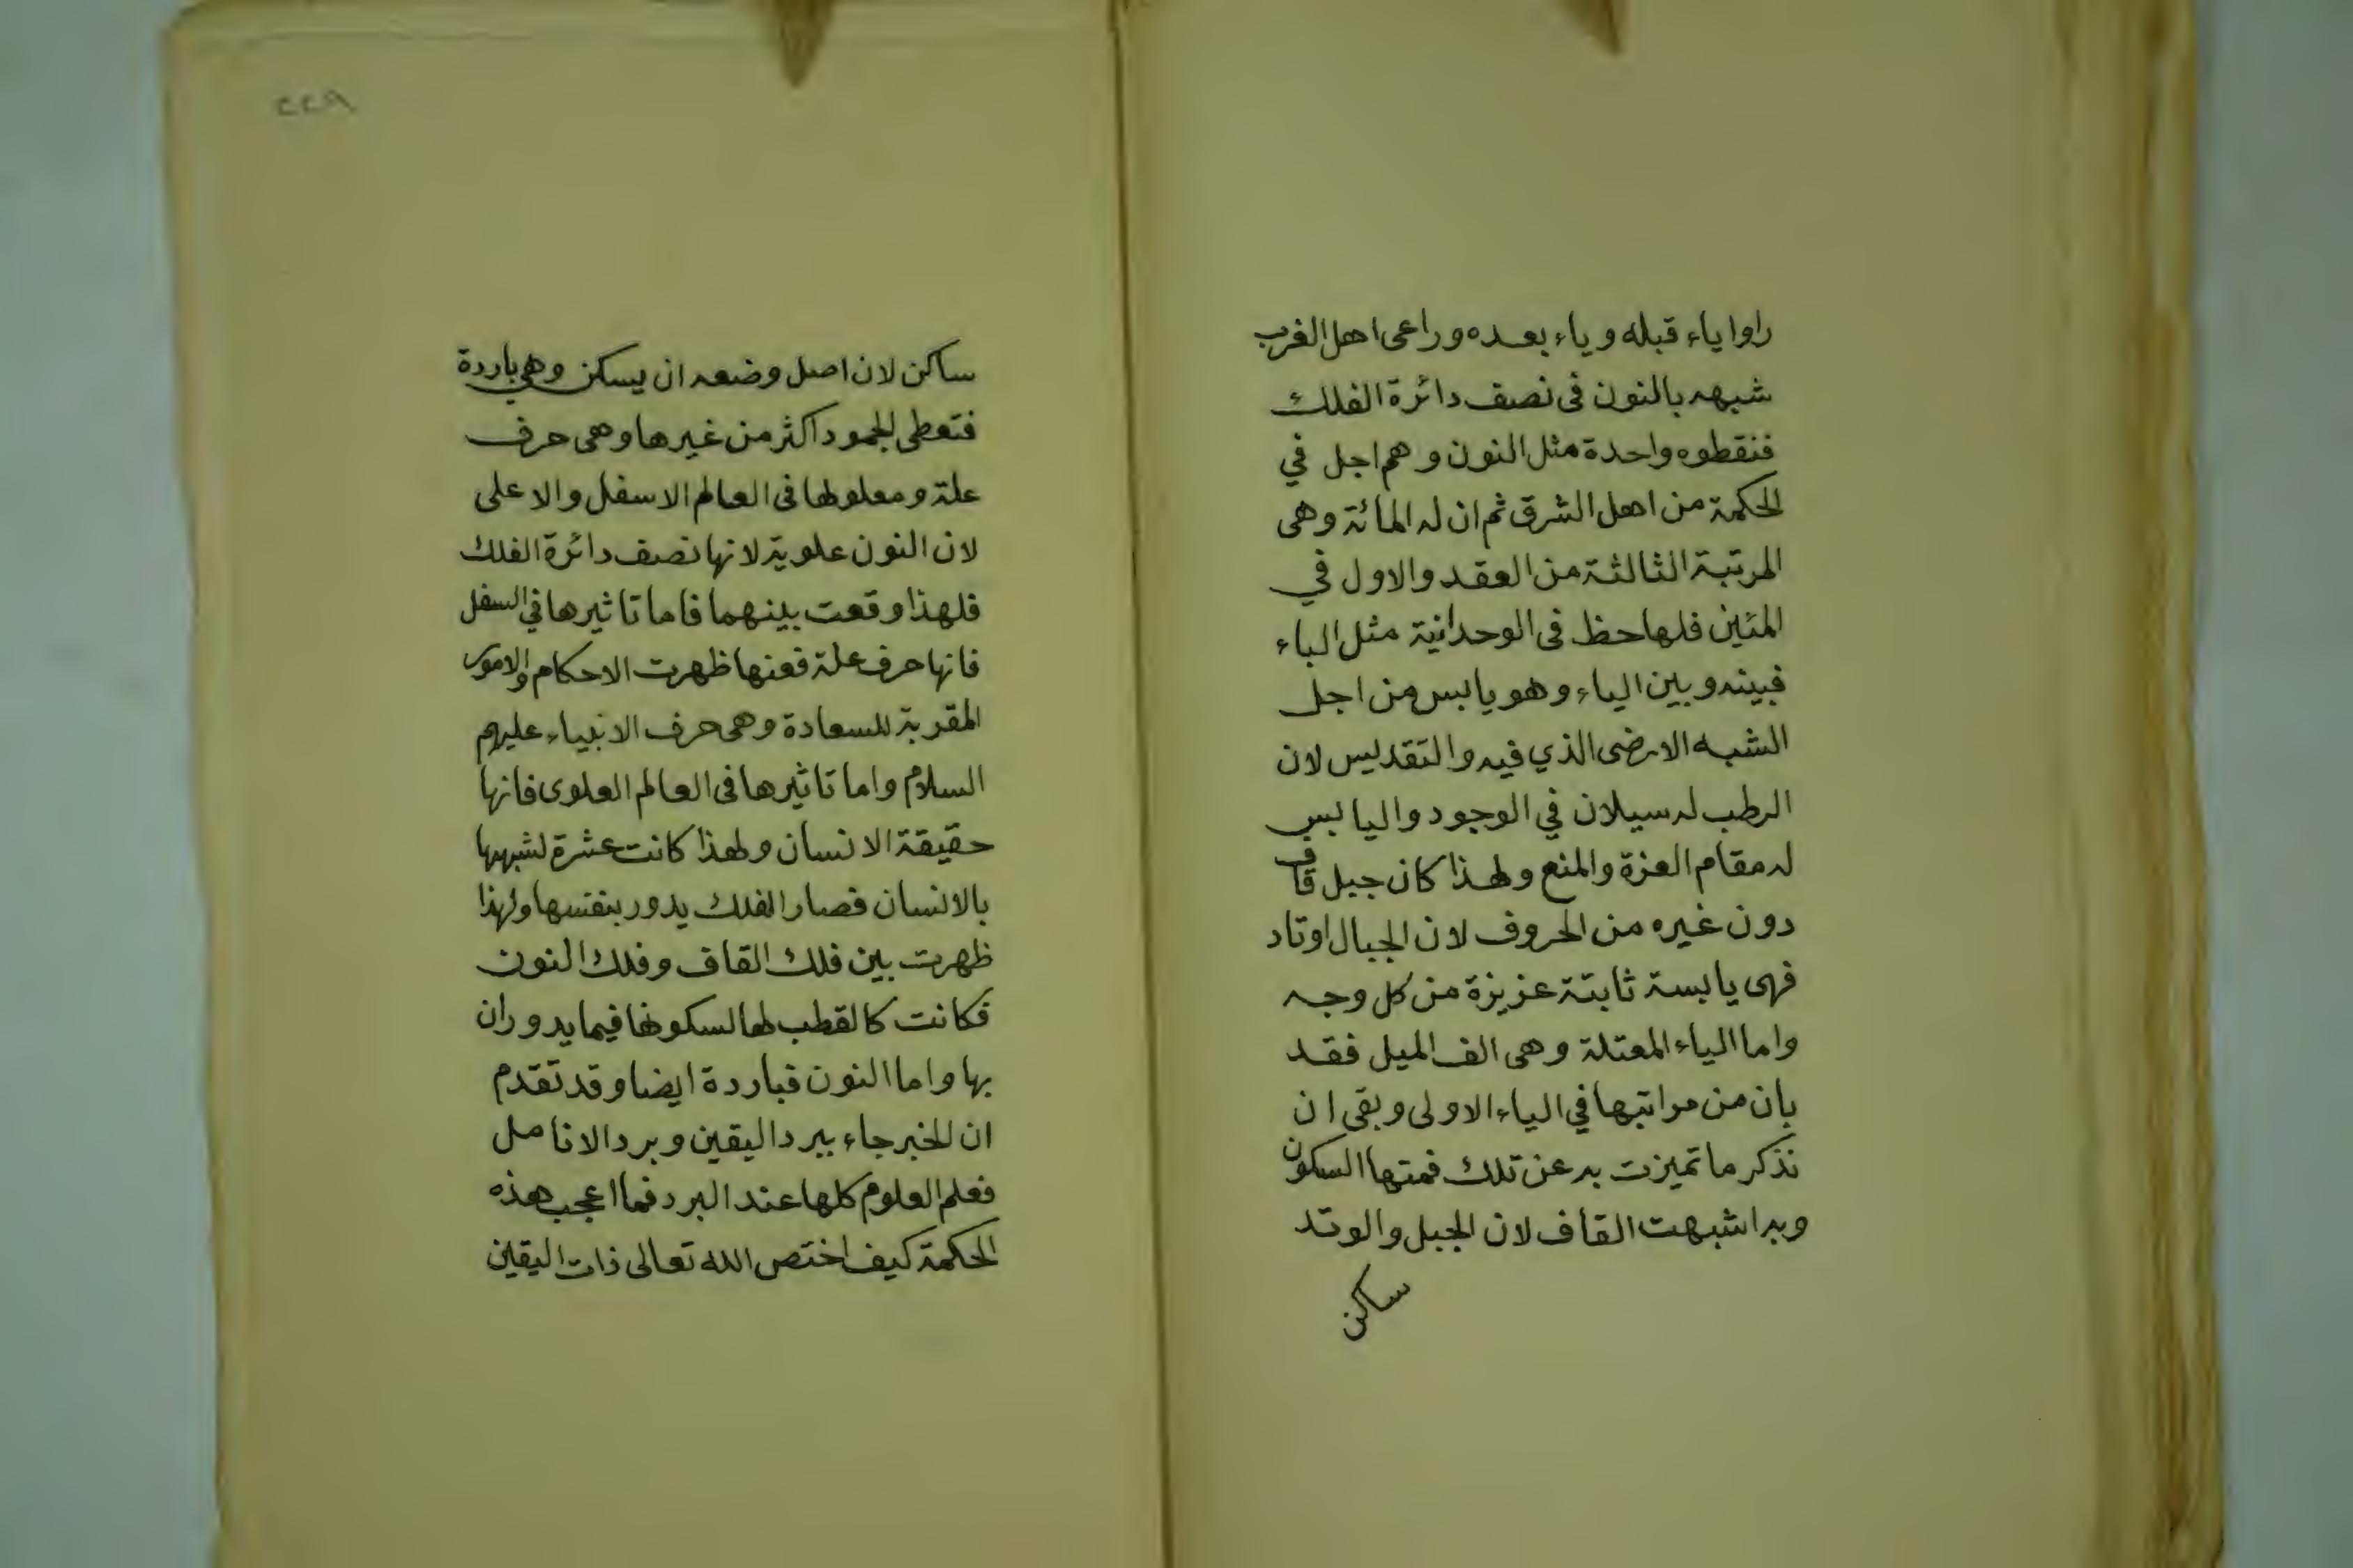 راوا ياء قبله وياء بعده وراعى اهل الغرب
شبهه بالنون فى نصف دائرة الفلك
فنقطوه واحدة مثل النون وهم اجل في
الحكمة من اهل الشرق ثم ان له المائة وهى
المرتبة الثالثة من العقد والاول في
المئين فلها حظ فى الوحدانية مثل الباء
فبينه وبين الياء وهو يابس من اجل
الشبه الارضى الذي فيه والتقديس لان
الرطب له سيلان في الوجود واليابس
له مقام العزة والمنع ولهذا كان جبل قاف
دون غيره من الحروف لان الجبال اوتاد
فهى يابسة ثابتة عزيزة من كل وجه
واما الياء المعتلة وهى الف الميل فقد
بان من مراتبها في الياء الاولى وبقى ان
نذكر ما تميزت به عن تلك فمتها السكون
وبه اشبهت القاف لان الجبل والوتد
ساكن
٢٢٩
ساكن لان اصل وضعه ان يسكن وهي باردة
فتعطى الجمود اكثر من غيرها وهى حرف
علة ومعلولها فى العالم الاسفل والاعلى
لان النون علوية لانها نصف دائرة الفلك
فلهذا وقعت بينهما فاما تاثيرها في السفل
فانها حرف علة فعنها ظهرت الاحكام والامور
المقربة للسعادة وهى حرف الانبياء عليهم
السلام واما تاثيرها فى العالم العلوى فانها
حقيقة الانسان ولهذا كانت عشرة لشبهها
بالانسان فصار الفلك يدور بنفسها ولهذا
ظهرت بين فلك القاف وفلك النون
فكانت كالقطب لها لسكونها فيما يدوران
بها واما النون فباردة ايضا وقد تقدم
ان الخبر جاء ببرد اليقين وبرد الانامل
فعلم العلوم كلها عند البرد فما اعجب هذه
الحكمة كيف اختص الله تعالى ذات اليقين